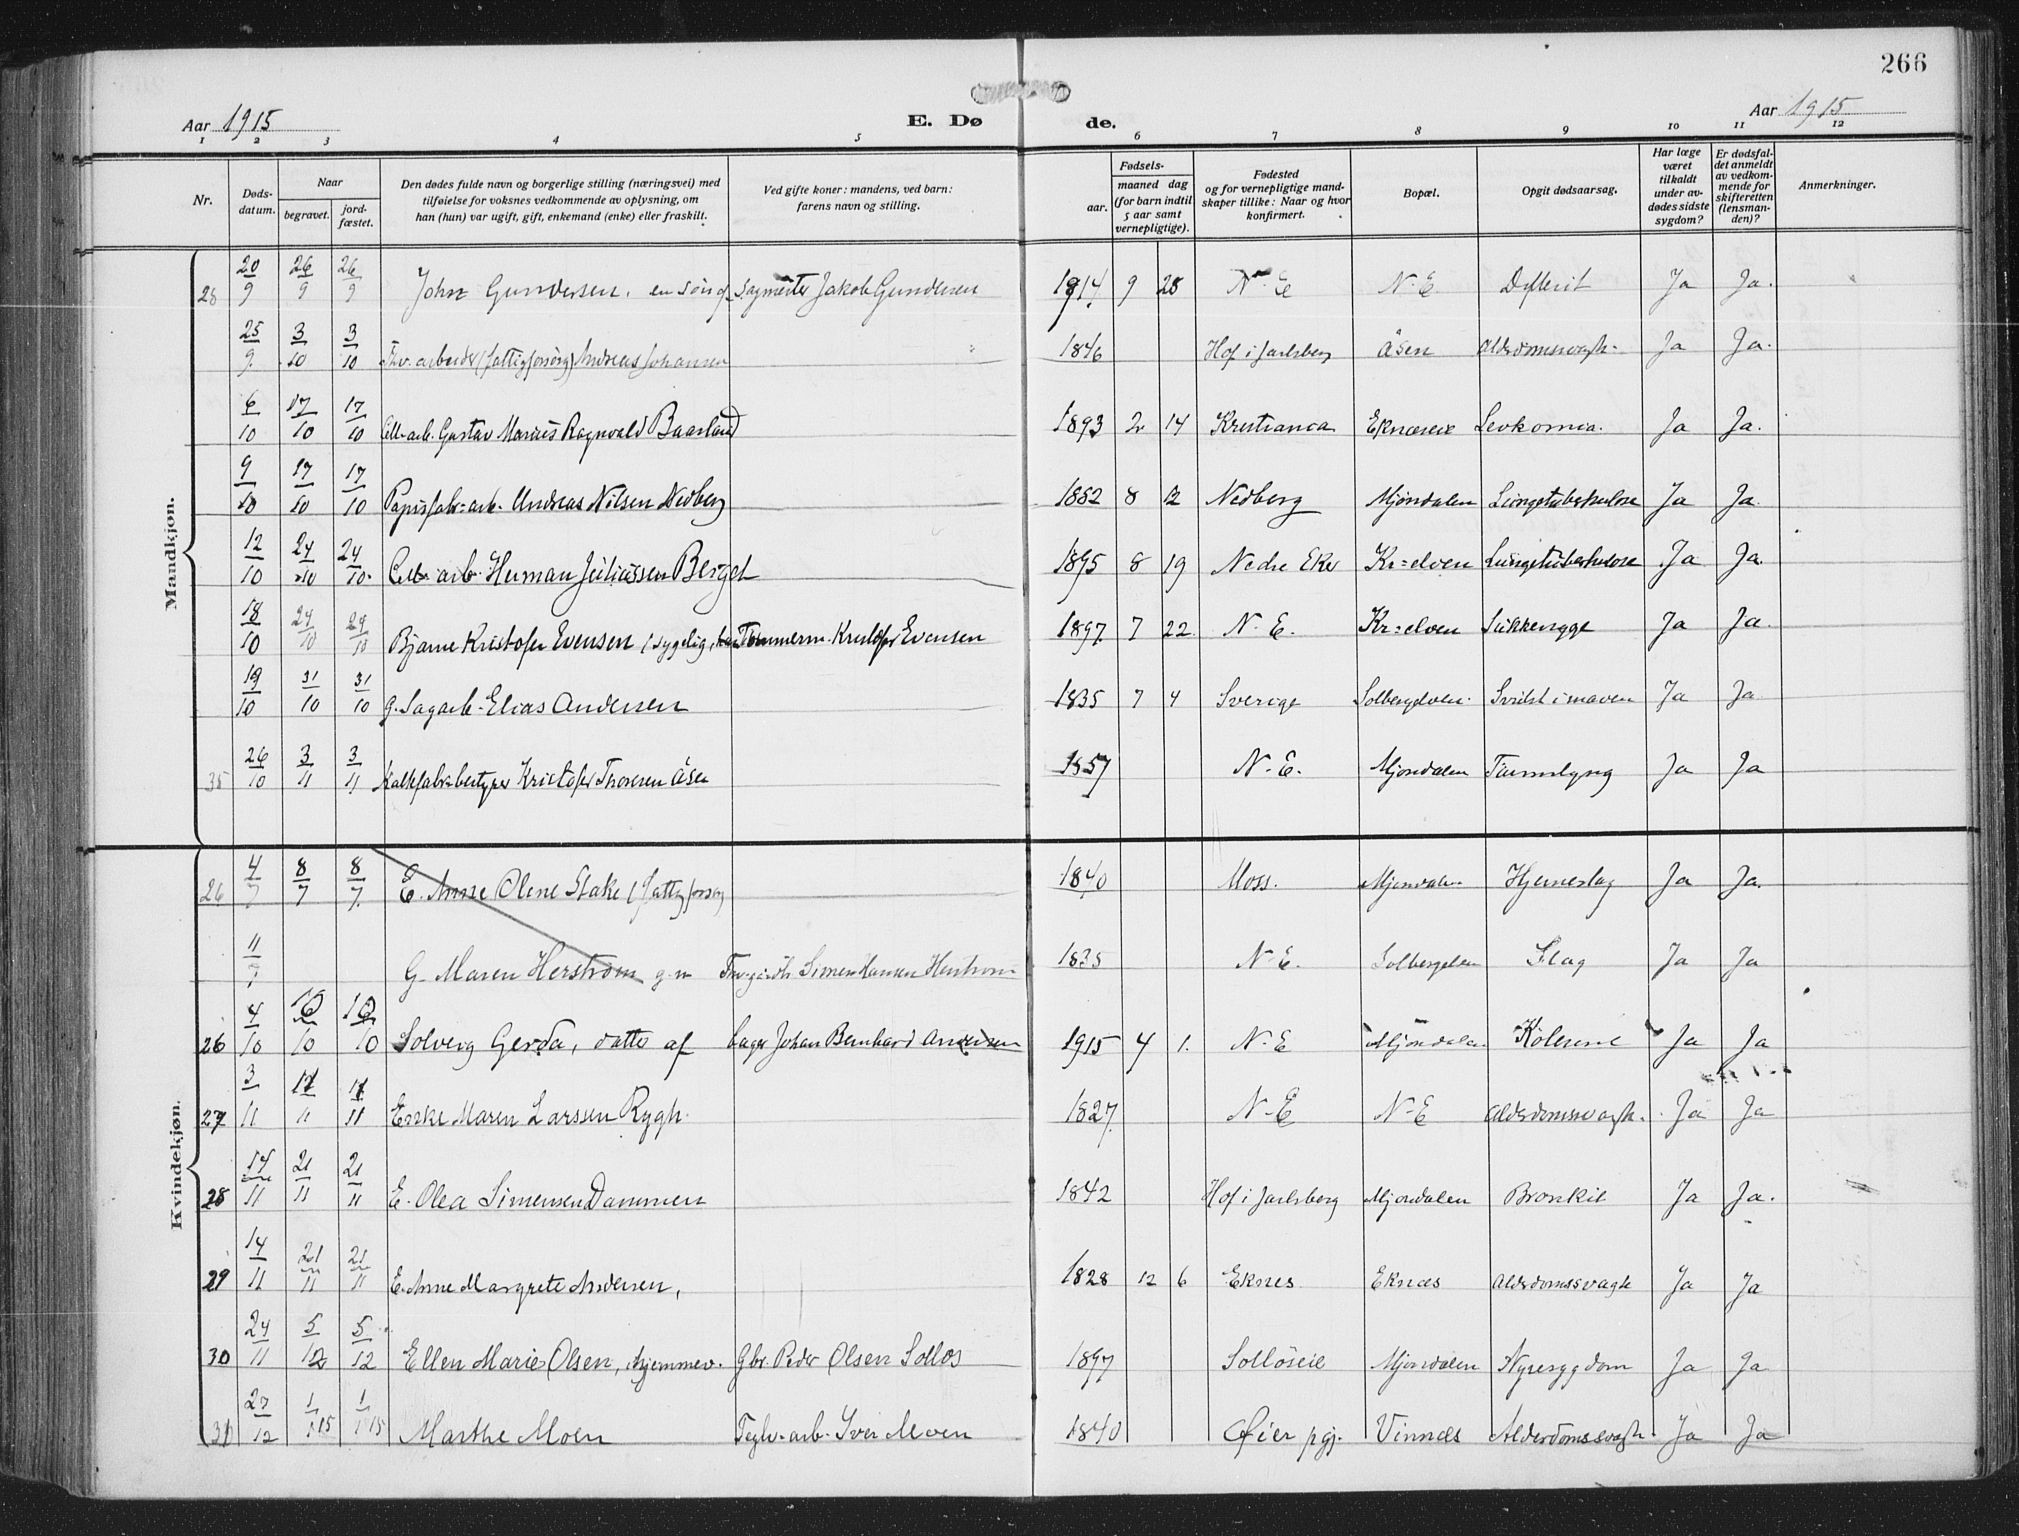 266
Aar 1915
E. Dø de.
Aar 1915
1 2 3 4 5 6 7 8 9 10 11 12
Nr.
Døds-
datum.
Naar
begravet.
jord-
fæstet.
Den dødes fulde navn og borgerlige stilling (næringsvei) med
tilføielse for voksnes vedkommende av oplysning, om
han (hun) var ugift, gift, enkemand (enke) eller fraskilt.
Ved gifte koner: mandens, ved barn:
farens navn og stilling.
Fødsels-
aar.
maaned dag
(for barn indtil
5 aar samt
vernepligtige).
Fødested
og for vernepligtige mand-
skaper tillike: Naar og hvor
konfirmert.
Bopæl.
Opgit dødsaarsag.
Har læge
været
tilkaldt
under av-
dødes sidste
sygdom?
Er dødsfal-
det anmeldt
av vedkom-
mende for
skifteretten
(lensman-
den)?
Anmerkninger.
Mandkjøn.
28 20/9 26/9 26/9 John Gundersen, en søn af Sagmester Jakob Gundersen 1914 9 28 N.E N.E Difterit Ja Ja.
25/9 3/10 3/10 arbeider (fattigforsörg) Andreas Johansen 1846 Hof i Jarlsberg Åsen Alderdomssvagh. Ja Ja.
6/10 17/10 17/10 Cell.arb. Gustav Marius Ragnvald Baarland 1893 2 14 Kristiania Eknæseie Levkomia. Ja Ja.
9/10 17/10 17/10 Papirfabr=arb. Andreas Nilsen Nedberg 1882 8 12 Nedberg Mjøndalen Lungetuberkulose Ja Ja.
12/10 24/10 24/10. Cell. arb. Herman Juliussen Berget 1895 8 19 Nedre Eker Kr=elven Lungetuberkulose Ja Ja.
18/10 24/10 24/10 Bjarne Kristofer Evensen, (sygelig, Tømmerm. Kristofer Evensen 1897 7 22 N.E. Kr=elven Sukkersyge Ja Ja.
19/10 31/10 31/10 g. Sagarb. Elias Andersen 1835 7 4 Sverige Solbergelven. Svulst i maven Ja Ja
35 26/10 3/11 3/11 Kalkfabr.bestyrer Kristofer Thoresen Åsen 1857 N.E. Mjøndalen Ja Ja
Kvindekjøn.
26 4/7 8/7 8/7. E. Anne Olene Stake (fattigforsörg 1840 Moss. Mjøndalen Hjerneslag Ja Ja.
11/7 G. Maren Herstrøm g.m Simen Hansen Herstrøm 1835 N.E. Solbergelven Slag Ja Ja
26 4/10 10/10 10/10 Solveig Gerda, datter af bager Johan Bernhard Andersen 1915 4 1. N.E Mjøndalen Kolerine Ja Ja
27 3/11 11/11 11/11 Enke Maren Larssen Rygh. 1827 N.E N.E Alderdomssvagh. Ja Ja
28 14/11 21/11 21/11 E. Olea Simensen Dammen 1842 Hof i Jarlsberg Mjøndalen Bronkit Ja Ja.
29 14/11 21/11 21/11 E. Anne Margrete Andersen, 1828 12 6 Eknes Eknæs Alderdomssvagh Ja Ja
30 24/11 5/12 5/12 Ellen Marie Olsen, hjemmev. Gbr. Peder Olsen Solløs 1897 Solløseie Mjøndalen Nyresygdom Ja Ja
31 27/12 1/1 15 1/1 15 Marthe Moen Teglv.arb. Iver Moen 1840 Øier pgj. Vinnæs Alderdomssvagh Ja Ja